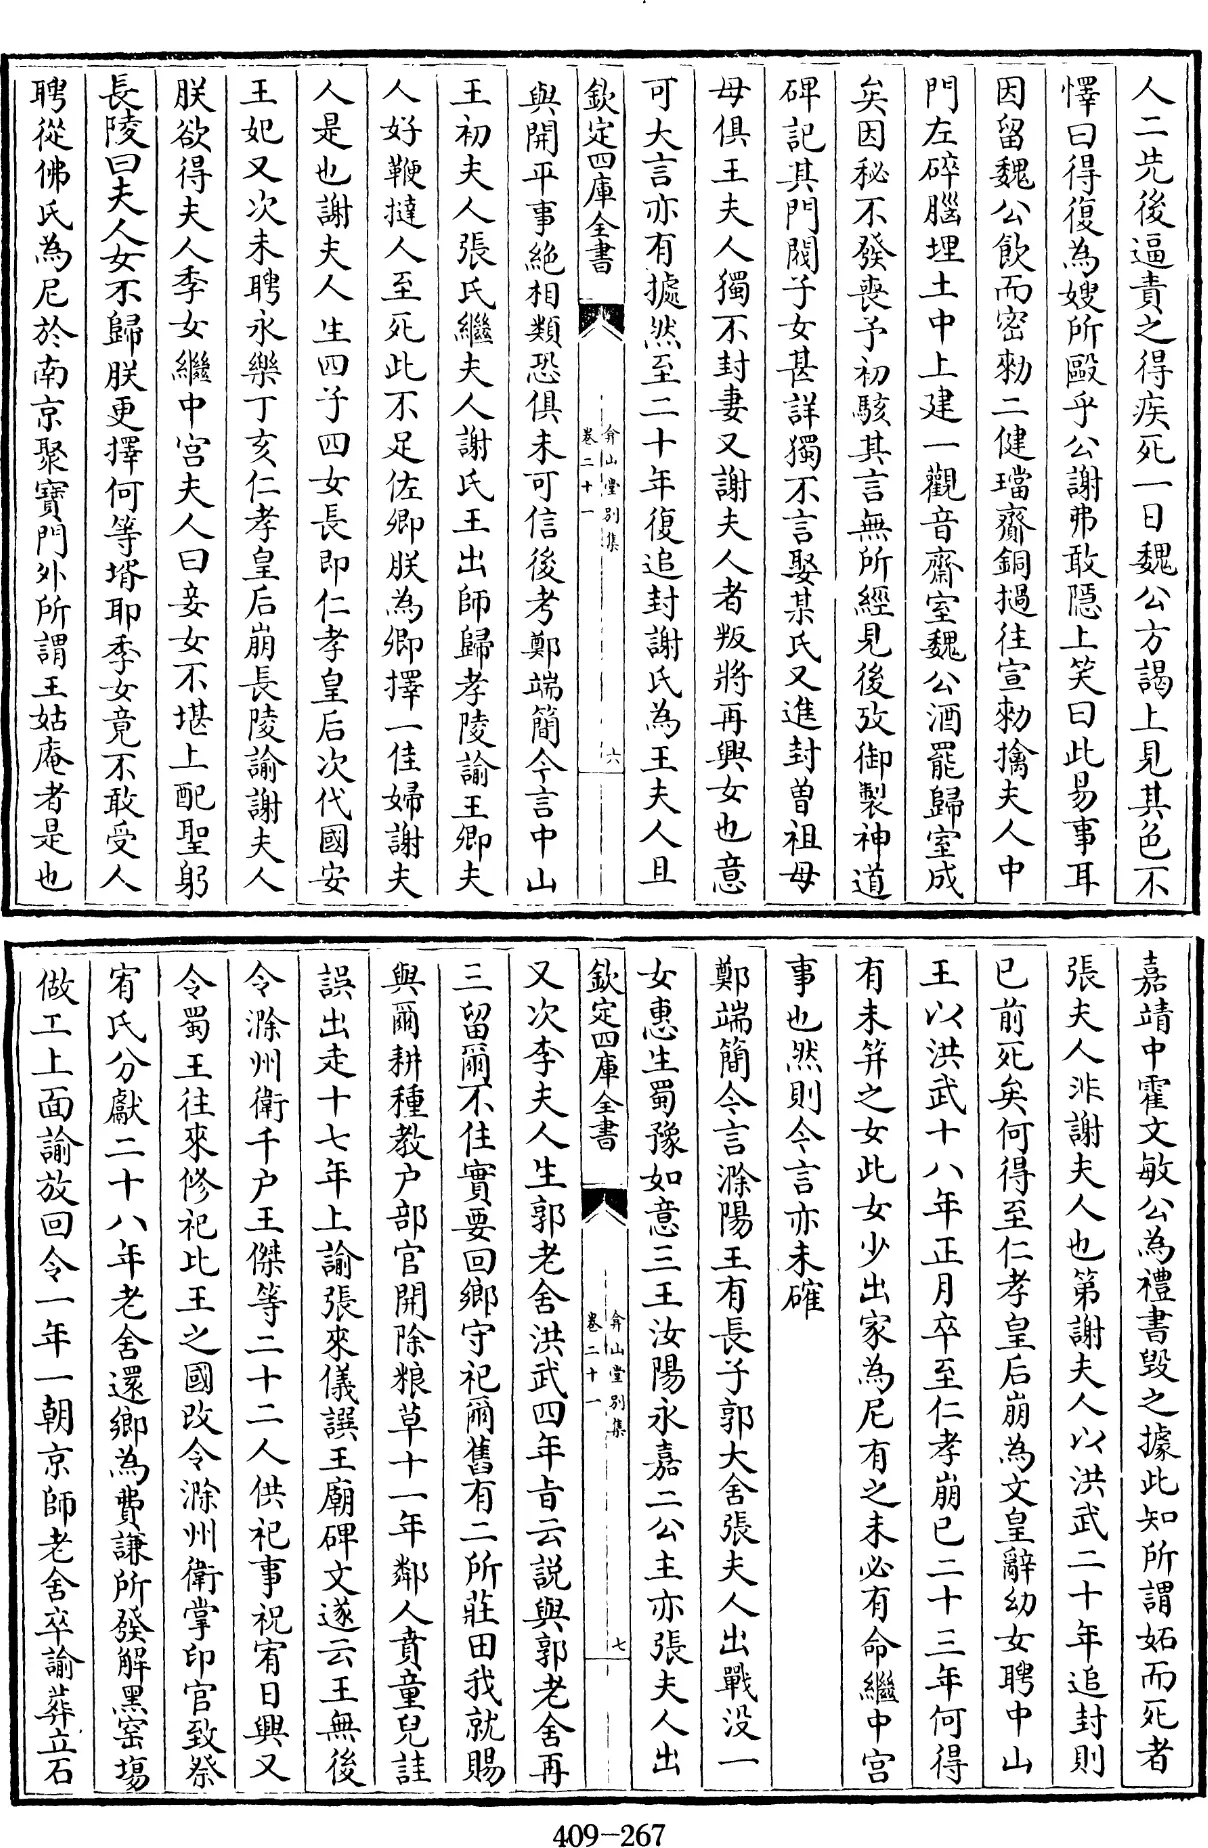 人二先後逼責之得疾死一日魏公方謁上見其色不
懌曰得復為嫂所毆乎公謝弗敢隱上笑曰此易事耳
因留魏公飲而密勑二健璫齎銅撾往宣勑擒夫人中
門左碎腦埋土中上建一觀音齋室魏公酒罷歸室成
矣因秘不發喪予初駭其言無所經見後攷御製神道
碑記其門閥子女甚詳獨不言娶某氏又進封曽祖母
母俱王夫人獨不封妻又謝夫人者叛將再興女也意
可大言亦有據然至二十年復追封謝氏為王夫人且
欽定四庫全書
弇山堂別集
卷二十一
六
與開平事絶相類恐俱未可信後考鄭端簡今言中山
王初夫人張氏繼夫人謝氏王出師歸孝陵諭王卿夫
人好鞭撻人至死此不足佐卿朕為卿擇一佳婦謝夫
人是也謝夫人生四子四女長即仁孝皇后次代國安
王妃又次未聘永樂丁亥仁孝皇后崩長陵諭謝夫人
朕欲得夫人季女繼中宮夫人曰妾女不堪上配聖躬
長陵曰夫人女不歸朕更擇何等壻耶季女竟不敢受人
聘從佛氏為尼於南京聚寶門外所謂王姑庵者是也
嘉靖中霍文敏公為禮書毀之據此知所謂妬而死者
張夫人非謝夫人也第謝夫人以洪武二十年追封則
已前死矣何得至仁孝皇后崩為文皇辭幼女聘中山
王以洪武十八年正月卒至仁孝崩已二十三年何得
有未笄之女此女少出家為尼有之未必有命繼中宮
事也然則今言亦未確
鄭端簡今言滁陽王有長子郭大舍張夫人出戰没一
女惠生蜀豫如意三王汝陽永嘉二公主亦張夫人出
欽定四庫全書
弇山堂別集
卷二十一
七
又次李夫人生郭老舍洪武四年旨云説與郭老舍再
三留爾不住實要回鄉守祀爾舊有二所莊田我就賜
與爾耕種教户部官開除粮草十一年鄰人賁童兒詿
誤出走十七年上諭張來儀譔王廟碑文遂云王無後
令滁州衛千户王傑等二十二人供祀事祝宥日興又
令蜀王往來修祀此王之國改令滁州衛掌印官致祭
宥氏分獻二十八年老舍還鄉為費謙所發解黑窑塲
做工上面諭放回令一年一朝京師老舍卒諭葬立石
409-267